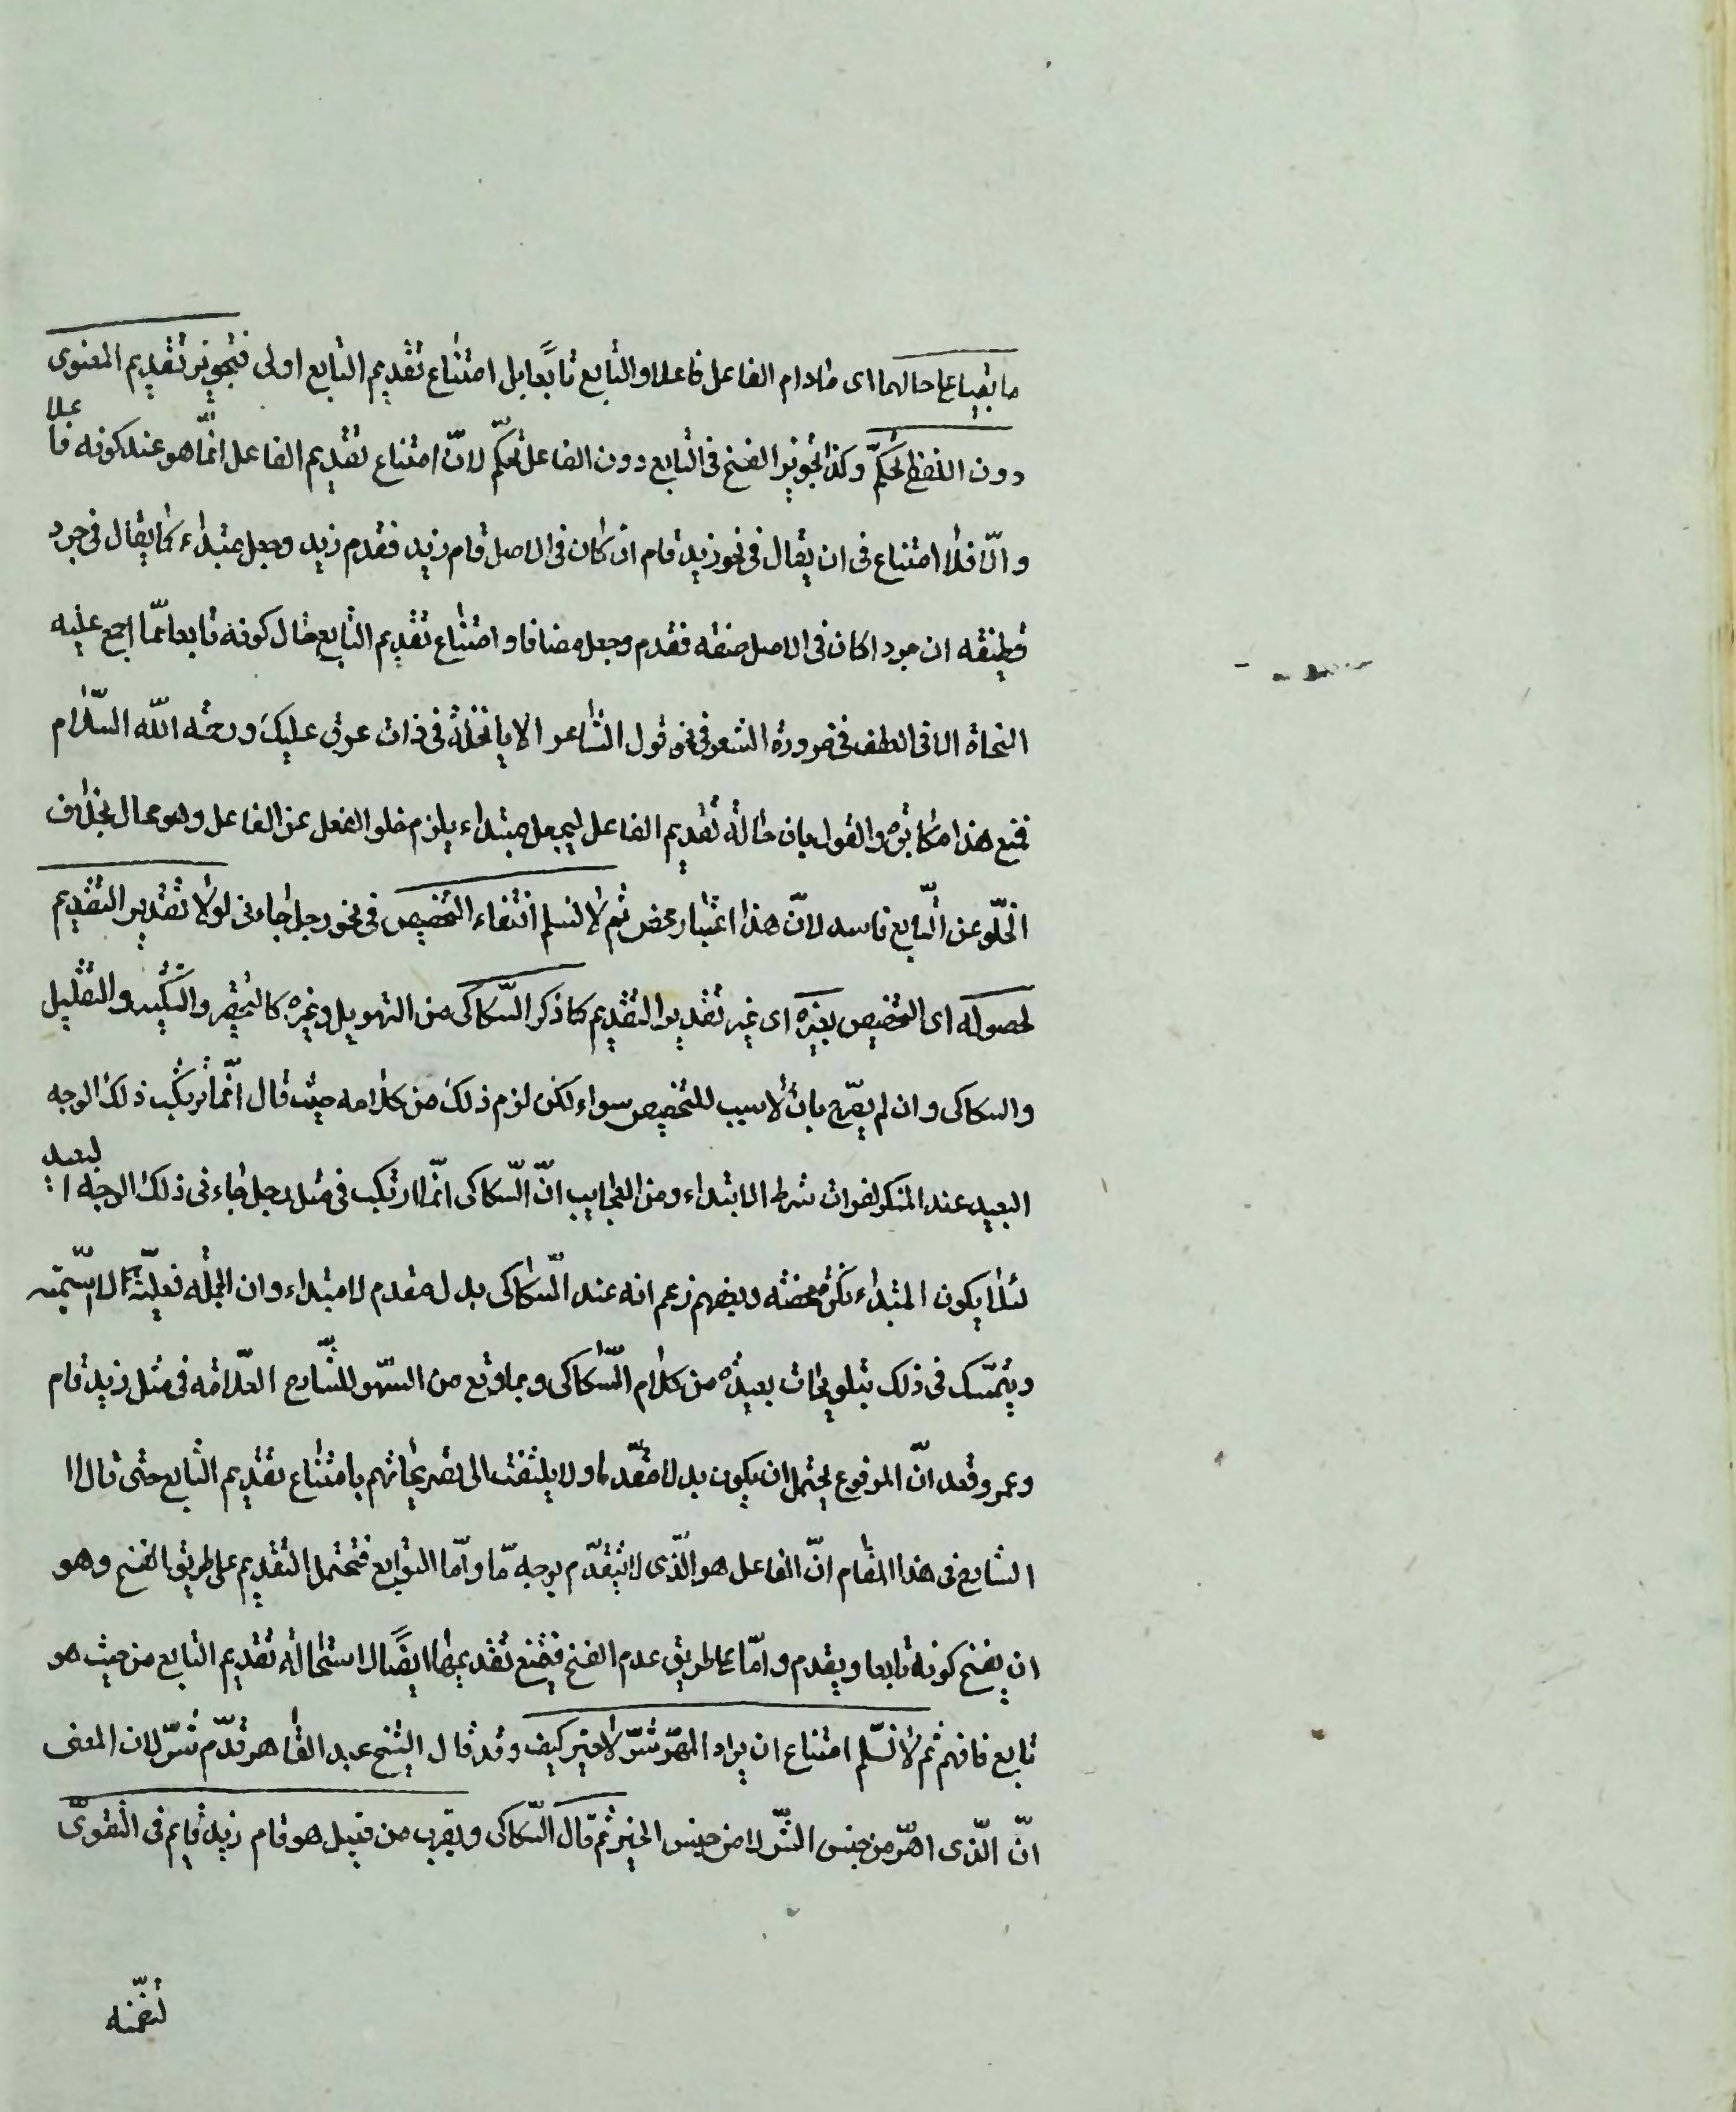 ما بقيا على حالهما اى مادام الفاعل فاعلا والتابع تابعًا بل امتناع تقديم التابع اولى فتجويز تقديم المعنوى
دون اللفظى تحكّم وكذا تجويز الفسخ فى التابع دون الفاعل تحكّم لانّ امتناع تقديم الفاعل انّما هو عند كونه فاعلا
والّا فلا امتناع فى ان يقال فى نحو زيد قام ان كان فى الاصل قام زيد فقدم زيد وجعل مبتداء كما يقال فى جرد
قطيفه ان جردا كان فى الاصل صفه فقدم وجعل مضافا وامتناع تقديم التابع حال كونه تابعا ممّا اجمع عليه
النحاة الا فى العطف فى ضرورة الشعر فى نحو قول الشاعر الا يا نخلة فى ذات عرق عليك ورحمه الله السّلام
فمنع هذا مكابره والقول بان حالة تقديم الفاعل ليجعل مبتداء يلزم خلو الفعل عن الفاعل وهو محال بخلاف
الخلّو عن التّابع فاسد لانّ هذا اعتبار محض ثم لا نسلم انتفاء التخصيص فى نحو رجل جاءنى لولا تقدير التقديم
لحصوله اى التخصيص بغيره اى غير تقدير التقديم كما ذكر السّكاكى من التهويل وغيره كالتحقير والتكثير والتقليل
والسكاكى وان لم يصّرح بان لا سبب للتخصيص سواه لكن لزم ذلك من كلامه حيث قال انّما يرتكب ذلك الوجه
البعيد عند المنكر لفوات شرط الابتداء ومن العجايب انّ السّكاكى انّما ارتكب فى مثل رجل جاءنى ذلك الوجه البعيد
لئلا يكون المبتداء نكرة محضه وبعضهم زعم انه عند السّكاكى بدل مقدم لا مبتداء وان الجمله فعليّة لا اسّميّه
ويتمّسك فى ذلك بتلويحات بعيده من كلام السّكاكى وبما وقع من السّهو للشّارح العلّامه فى مثل زيد قام
وعمرو قعد انّ المرفوع يحتمل ان يكون بدلا مقّدما ولا يلتفت الى تصريحاتهم بامتناع تقديم التابع حتى قال ا
الشارح فى هذا المقام انّ الفاعل هو الّذى لا يتقدّم بوجه مّا وامّا التوابع فتحتمل التقديم على طريق الفسخ وهو
ان يفسخ كونه تابعا ويقدم وامّا على طريق عدم الفسخ فيمتنع تقديمها ايضًا لاستحالة تقديم التابع من حيث هو
تابع فافهم ثم لا نسّلم امتناع ان يراد المهّر شّر لا خير كيف وقد قال الشيخ عبد القاهر قدّم شّر لان المعنى
انّ الّذى اهّر من جنس الشّر لا من جنس الخير ثم قال السّكاكى ويقرب من قبيل هو قام زيد قايم فى التقوّى
لتضمّنه